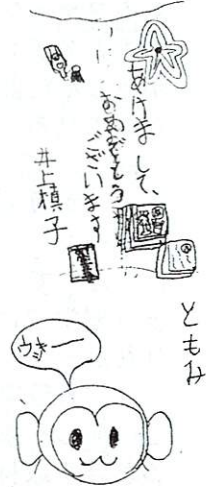 あけまして、
おめでとう
ございます
井上槙子
ともみ
ウキーー